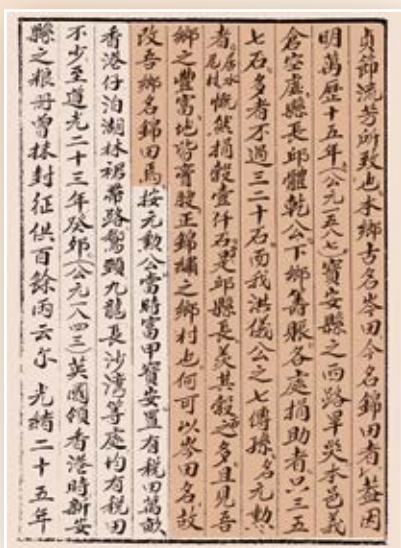 貞節流芳所致也本鄉古名岑田今名錦田者蓋因
明萬歷十五年(公元一五八七)寶安縣之西路旱災本邑義
倉空虛縣長邱體乾公下鄉籌賑各處捐助者只三五
七石多者不過三二十石而我洪儀公之七傳孫名元勳
者居水尾村慨然捐穀壹仟石是邱縣長羨其穀之多且見吾
鄉之豐富地皆膏腴正錦繡之鄉村也何可以岑田名故
改吾鄉名錦田焉按元勳公當時富甲寶安置有稅田萬畝
香港仔泊湖林裙帶路鴛頸九龍長沙灣等處均有稅田
不少至道光二十三年癸卯(公元一八四三)英國領香港時新安
縣之粮冊曾抹封征供百餘両云尔 光緒二十五年